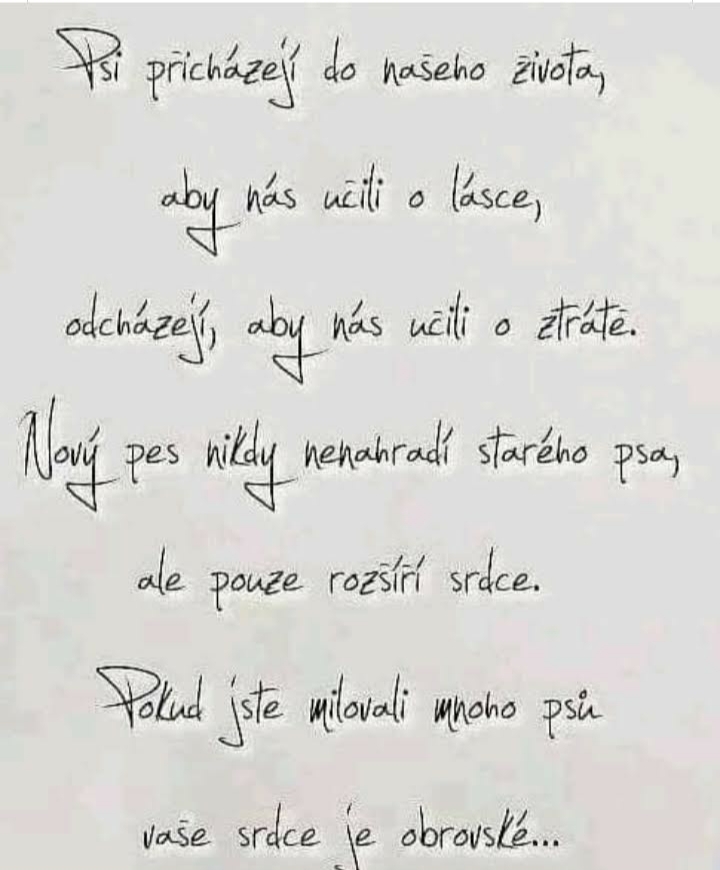 Psi přicházejí do našeho života,
aby nás učili o lásce,
odcházejí, aby nás učili o ztrátě.
Nový pes nikdy nenahradí starého psa,
ale pouze rozšíří srdce.
Pokud jste milovali mnoho psů
vaše srdce je obrovské...